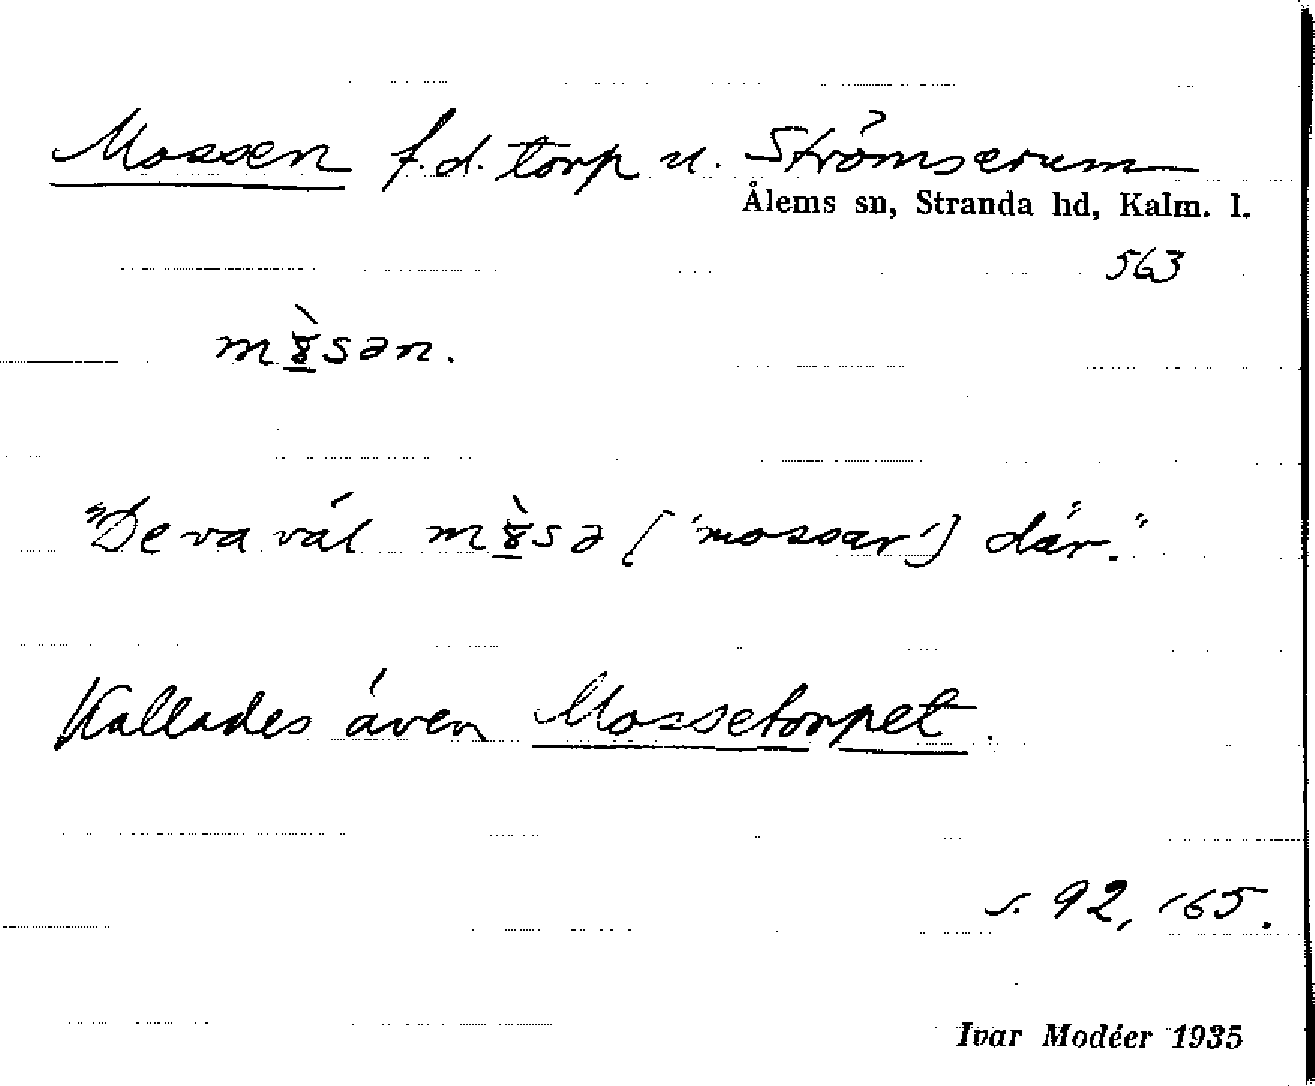 Mossen f.d. torp u. Strömserum
Ålems sn, Stranda hd, Kalm. l.
563
m8̀sən.
"De va väl m8̀sə ['mossar'] där."
Kallades även Mossetorpet.
s. 92, 165.
Ivar Modéer 1935